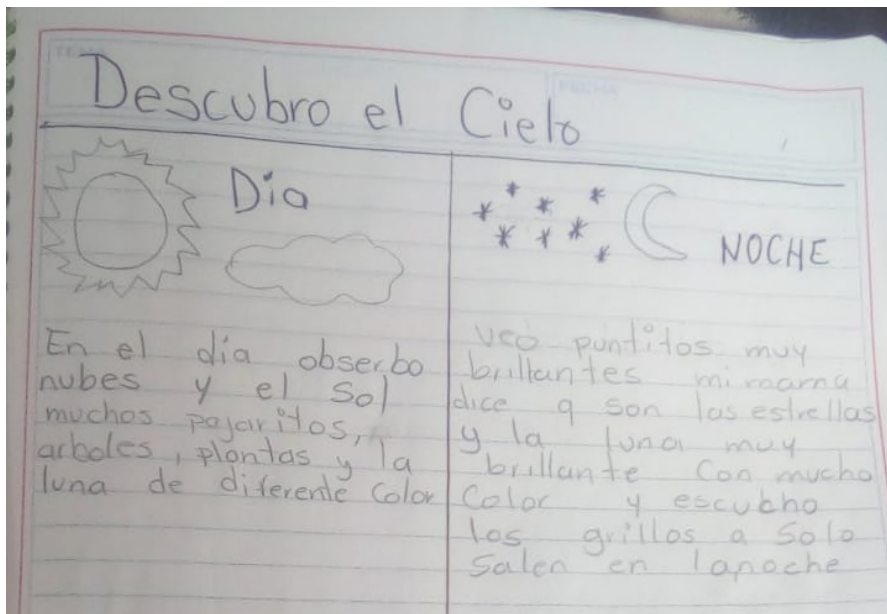 TEMA
FECHA
Descubro el Cielo
Dia
En el día obserbo
nubes y el Sol
muchos pajaritos,
arboles, plantas y la
luna de diferente Color
NOCHE
veo puntitos muy
brillantes mi mama
dice q son las estrellas
y la luna muy
brillante Con mucho
Color y escucho
los grillos a Solo
Salen en lanoche